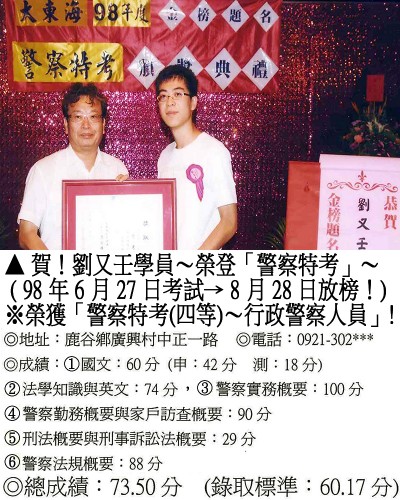 大東海 98年度 金榜題名
警察特考 頒獎典禮
恭賀
劉又壬
金榜題名
▲賀！劉又壬學員～榮登「警察特考」～
（98年6月27日考試→8月28日放榜！）
※榮獲「警察特考(四等)～行政警察人員」!
◎地址：鹿谷鄉廣興村中正一路 ◎電話：0921-302***
◎成績：①國文：60分 (申：42分 測：18分)
②法學知識與英文：74分，③警察實務概要：100分
④警察勤務概要與家戶訪查概要：90分
⑤刑法概要與刑事訴訟法概要：29分
⑥警察法規概要：88分
◎總成績：73.50分 (錄取標準：60.17分)